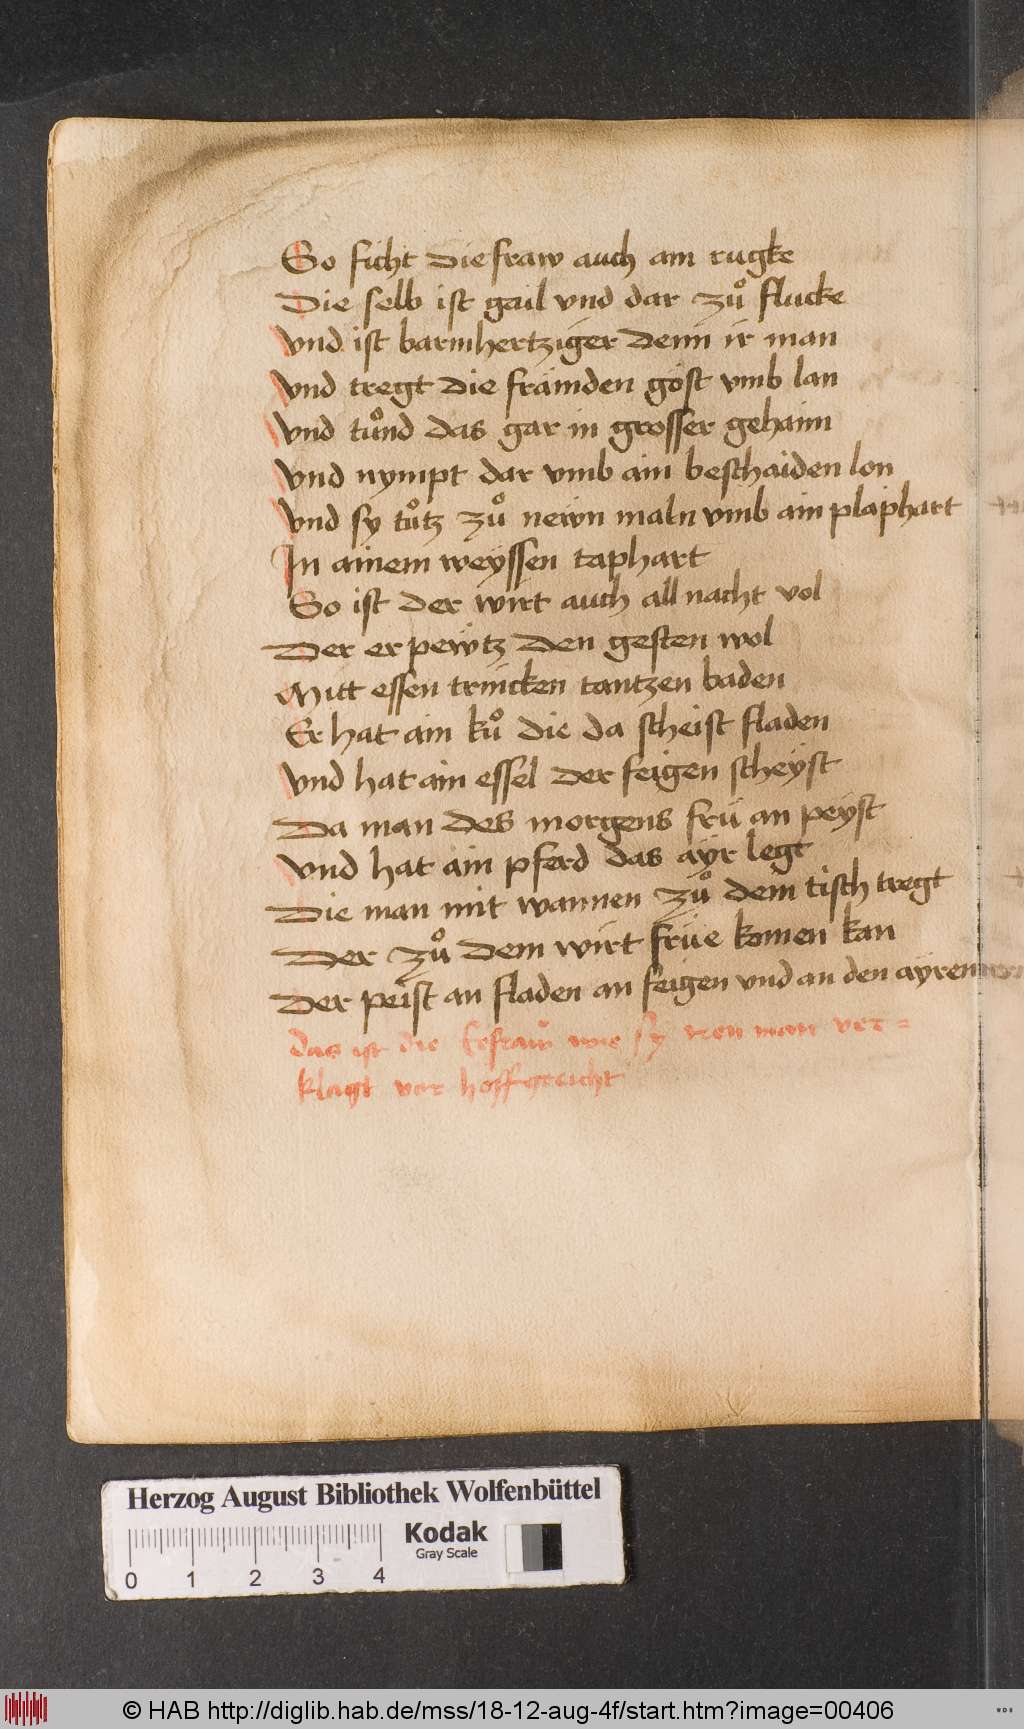 So ficht die fraw auch am rugke
Die selb ist gail vnd dar zuͦ flucke
Vnd ist barmhertziger denn ir man
Vnd tregt die främden göst vmb lan
Vnd tuͦnd das gar in grosser gehaim
Vnd nympt dar vmb ain beschaiden lon
Vnd sy tuͦtz zuͦ newn maln vmb ain plaphart
In ainem weyssen taphart
So ist der wirt auch all nacht vol
Der er pewtz den gesten wol
Mitt essen trincken tantzen baden
Er hat ain kuͦ die da scheist fladen
Vnd hat ain essel der feigen scheyst
Da man des morgens frü an peyst
Vnd hat ain pferd das ayr legt
Die man mit wannen zuͦ dem tisch tregt
Der zuͦ dem wirt früe komen kan
Der peist an fladen an feigen vnd an den ayren
das ist die Eefraw wie sy iren man ver=
klagt vor hoffgericht
Herzog August Bibliothek Wolfenbüttel
Kodak
Gray Scale
0 1 2 3 4
© HAB http://diglib.hab.de/mss/18-12-aug-4f/start.htm?image=00406